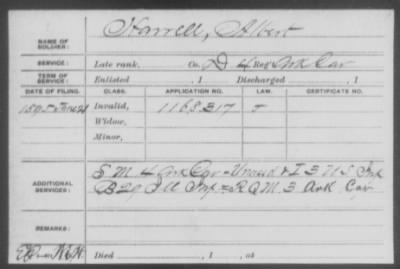 NAME OF SOLDIER: Harrell, Albert
SERVICE: Late rank, Co. D 4 Reg't Ark Cav
TERM OF SERVICE: Enlisted , 1 Discharged , 1
DATE OF FILING. CLASS. APPLICATION NO. LAW. CERTIFICATE NO.
1895 June 21 Invalid, 1168317
Widow,
Minor,
ADDITIONAL SERVICES: S M 4 Ark Cav & I 3 U S Inf
B 29 Ill Inf R Q M 3 Ark Cav
REMARKS:
Died , 1 , at